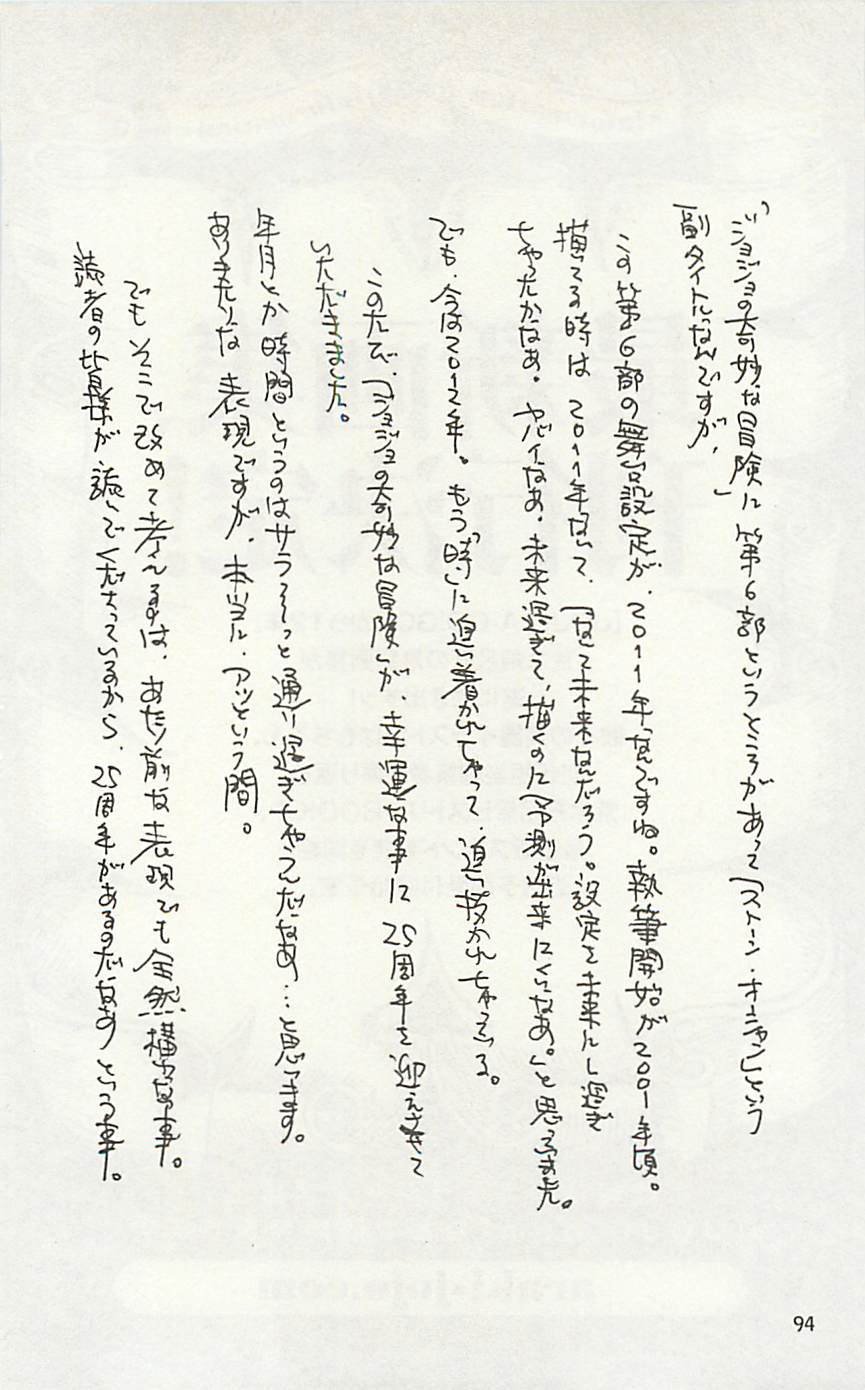 『ジョジョの奇妙な冒険』に第6部というところがあって「ストーン・オーシャン」という
副タイトルなんですが、
この第6部の舞台設定が、2011年なんですね。執筆開始が2001年頃。
描いてる時は2011年なんて、「なんて未来なんだろう。設定を未来にし過ぎ
ちゃったかなあ。ヤバイなあ。未来過ぎて、描くのに予測が出来にくいなあ。」と思ってました。
でも、今は2012年。もう「時」に追い着かれちゃって、追い抜かれちゃってる。
このたび、「ジョジョの奇妙な冒険」が、幸運な事に25周年を迎えさせて
いただきました。
年月とか時間というのはサラ〜っと通り過ぎちゃうんだなあ…と思います。
ありきたりな表現ですが、本当に、アッという間。
でもそこで改めて考えるのは、あたり前な表現でも全然構わない事。
読者の皆様が読んでくださっているから、25周年があるのだなあという事。
94